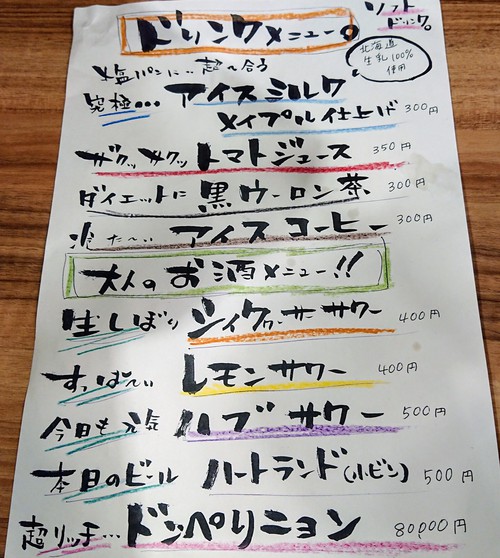 ドリンクメニュー。
ソフトドリンク。
北海道
生乳100%
使用
塩パンに、超〜合う
究極… アイスミルク
メイプル仕上げ 300円
ザクッサクッ トマトジュース 350円
ダイエットに 黒ウーロン茶 300円
冷た〜い アイスコーヒー 300円
大人のお酒メニュー!!
生しぼり シイクワーサーサワー 400円
すっぱ〜い レモンサワー 400円
今日も元気 ハブサワー 500円
本日のビール ハートランド(小ビン) 500円
超リッチ… ドンペリニョン 80000円